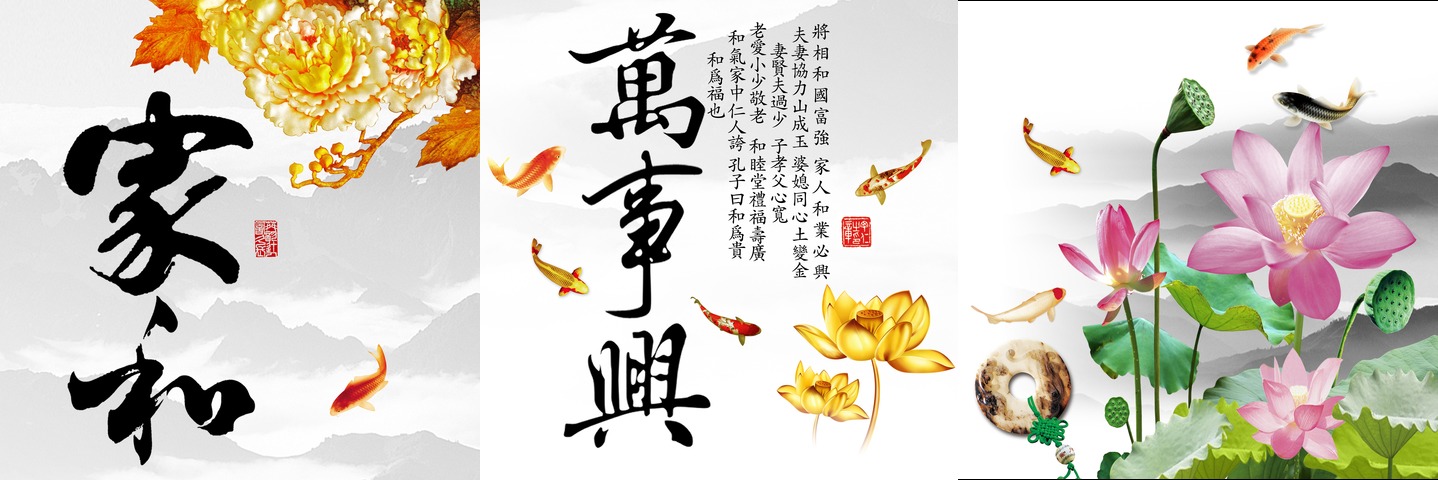 家和
萬事興
將相和國富強 家人和業必興
夫妻協力山成玉 婆媳同心土變金
妻賢夫過少 子孝父心寬
老愛小少敬老 和睦堂禮福壽廣
和氣家中仁人誇 孔子曰和爲貴
和爲福也